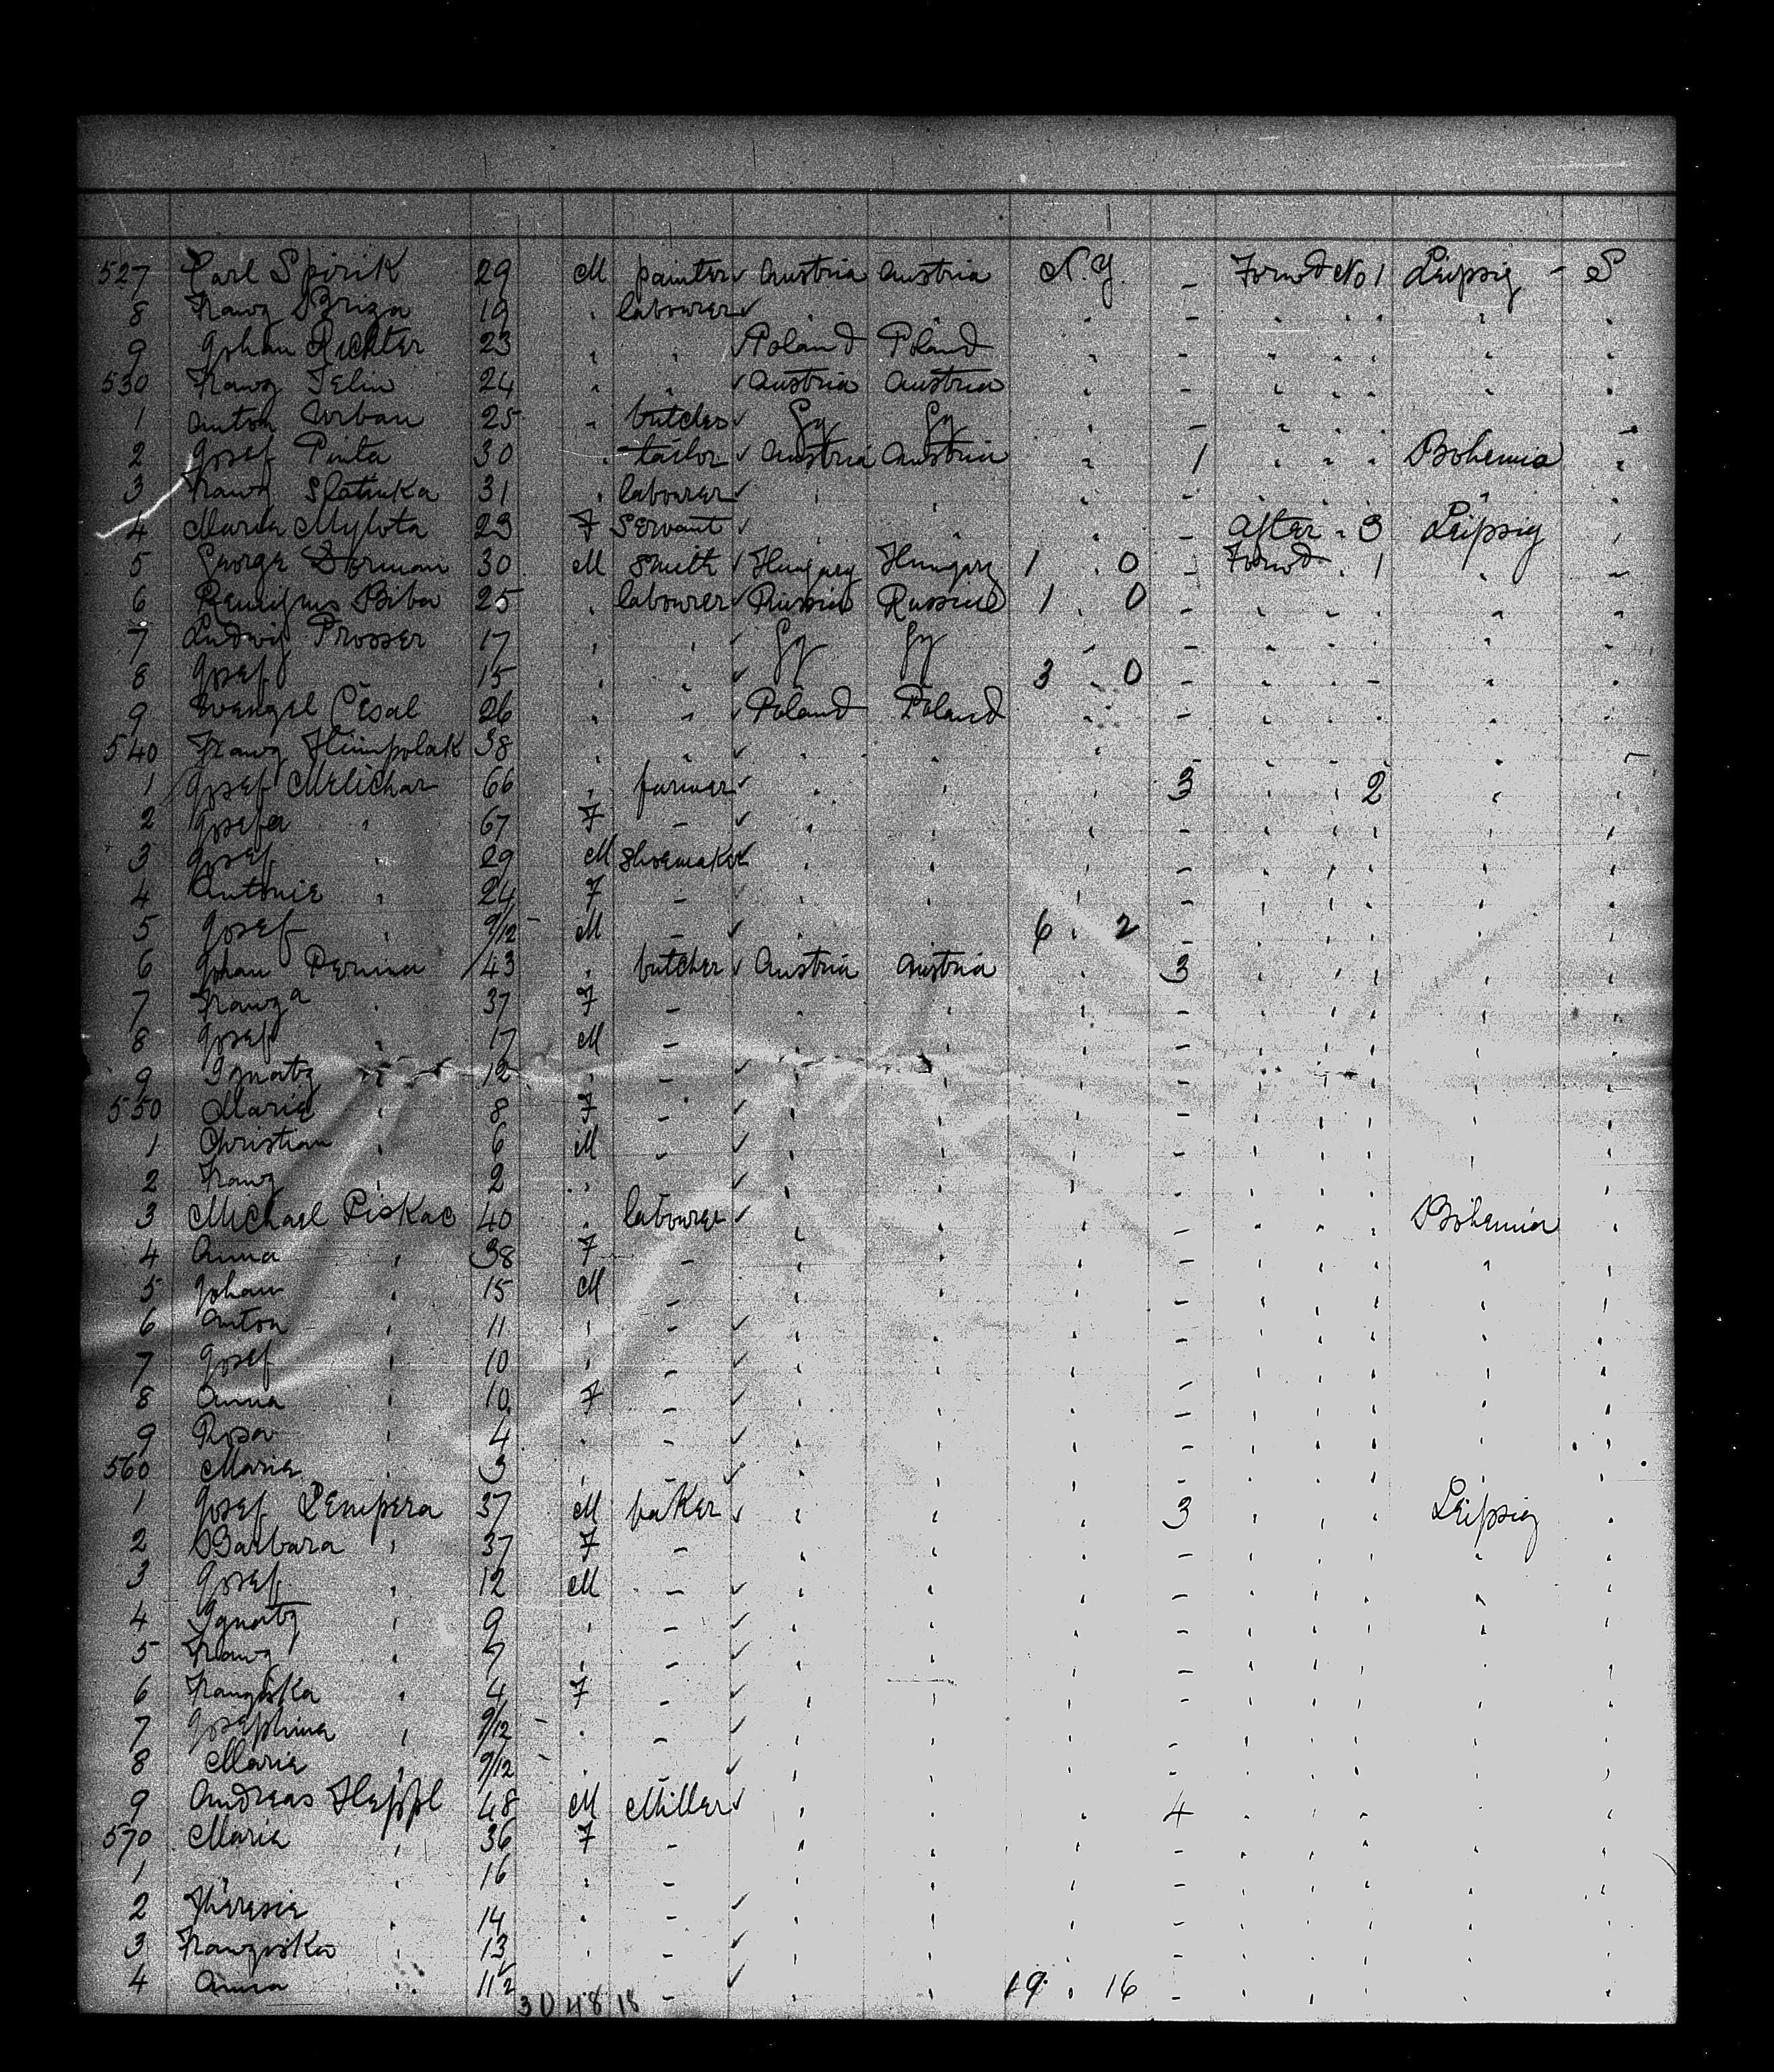 527 Carl Spirik 29 M painter ✓ Austria Austria N.Y. - Forwd No 1 Leipzig - S
8 Franz Briza 19 . labourer ✓ . - . . . . .
9 Johan Richter 23 . . ✓ Poland Poland . - . . . . .
530 Franz Jelin 24 . . ✓ Austria Austria . - . . . . .
1 Anton Urban 25 . butcher ✓ Gy Gy . - . . . .
2 Josef Pinta 30 . tailor ✓ Austria Austria . 1 . . . Bohemia .
3 Franz Slatinka 31 . labourer ✓ . . . - . . . " .
4 Maria Mylota 23 F Servant ✓ . . . - After . 3 Leipzig .
5 George Dorman 30 M Smith ✓ Hungary Hungary 1 . 0 - Forwd . 1 . -
6 Biba 25 . labourer ✓ Russia Russia 1 . 0 - . . . . .
7 Ludwig Prosser 17 . . ✓ Gy Gy . - . . . . .
8 Josef 15 . . ✓ . . 3 . 0 - . . - . .
9 Wenzel Cesal 26 . . ✓ Poland Poland . - . . . . .
540 Franz Himpolak 38 . . ✓ . . . - . . . .
1 Josef Melichar 66 . farmer ✓ . . . 3 . . 2 . .
2 Josefa . 67 F - ✓ . . . - . . . . .
3 Josef . 29 M Shoemaker ✓ . . . - . . . . .
4 Antonie . 24 F - . . . - . . . . .
5 Josef 9/12 - M - ✓ . . 6 . 2 - . . . . .
6 Johan Perina 43 . butcher ✓ Austria Austria . 3 . . . . .
7 Franza . 37 F - . . . - . . . . .
8 Josef . 17 M - . . . - . . . . .
9 Ignatz . 12 . - ✓ . . . - . . . . .
550 Maria . 8 F - ✓ . . . - . . . . .
1 Christian . 6 M - ✓ . . . - . . . . .
2 Franz . 2 . ✓ . . . - . . . . .
3 Michael Piskac 40 . labourer ✓ . . . - . . . Bohemia .
4 Anna . 38 F - . . . - . . . . .
5 Johan . 15 M - . . . - . . . . .
6 Anton . 11 . - ✓ . . . - . . . . .
7 Josef . 10 . - ✓ . . . - . . . . .
8 Anna . 10 F - ✓ . . . - . . . . .
9 Rosa . 4 . - ✓ . . . - . . . . .
560 Maria . 3 . - ✓ . . . - . . . . .
1 Josef Lempera 37 M baker ✓ . . . 3 . . . Leipzig .
2 Barbara . 37 F - . . . - . . . . .
3 Josef . 12 M - ✓ . . . - . . . . .
4 Ignatz . 9 . - ✓ . . . - . . . . .
5 Franz . 7 . - ✓ . . . - . . . . .
6 Franziska . 4 F - ✓ . . . - . . . . .
7 Josephina . 9/12 - . - ✓ . . . - . . . . .
8 Maria . 9/12 - . - ✓ . . . - . . . . .
9 Andreas 48 M Miller ✓ . . . 4 . . . . .
570 Maria . 36 F - . . . - . . . . .
1 . 16 . - . . . - . . . . .
2 Theresia . 14 . - ✓ . . . - . . . . .
3 Franziska . 13 . - ✓ . . . - . . . . .
4 Anna . 11½ - ✓ . . 19 . 16 - . . . . .